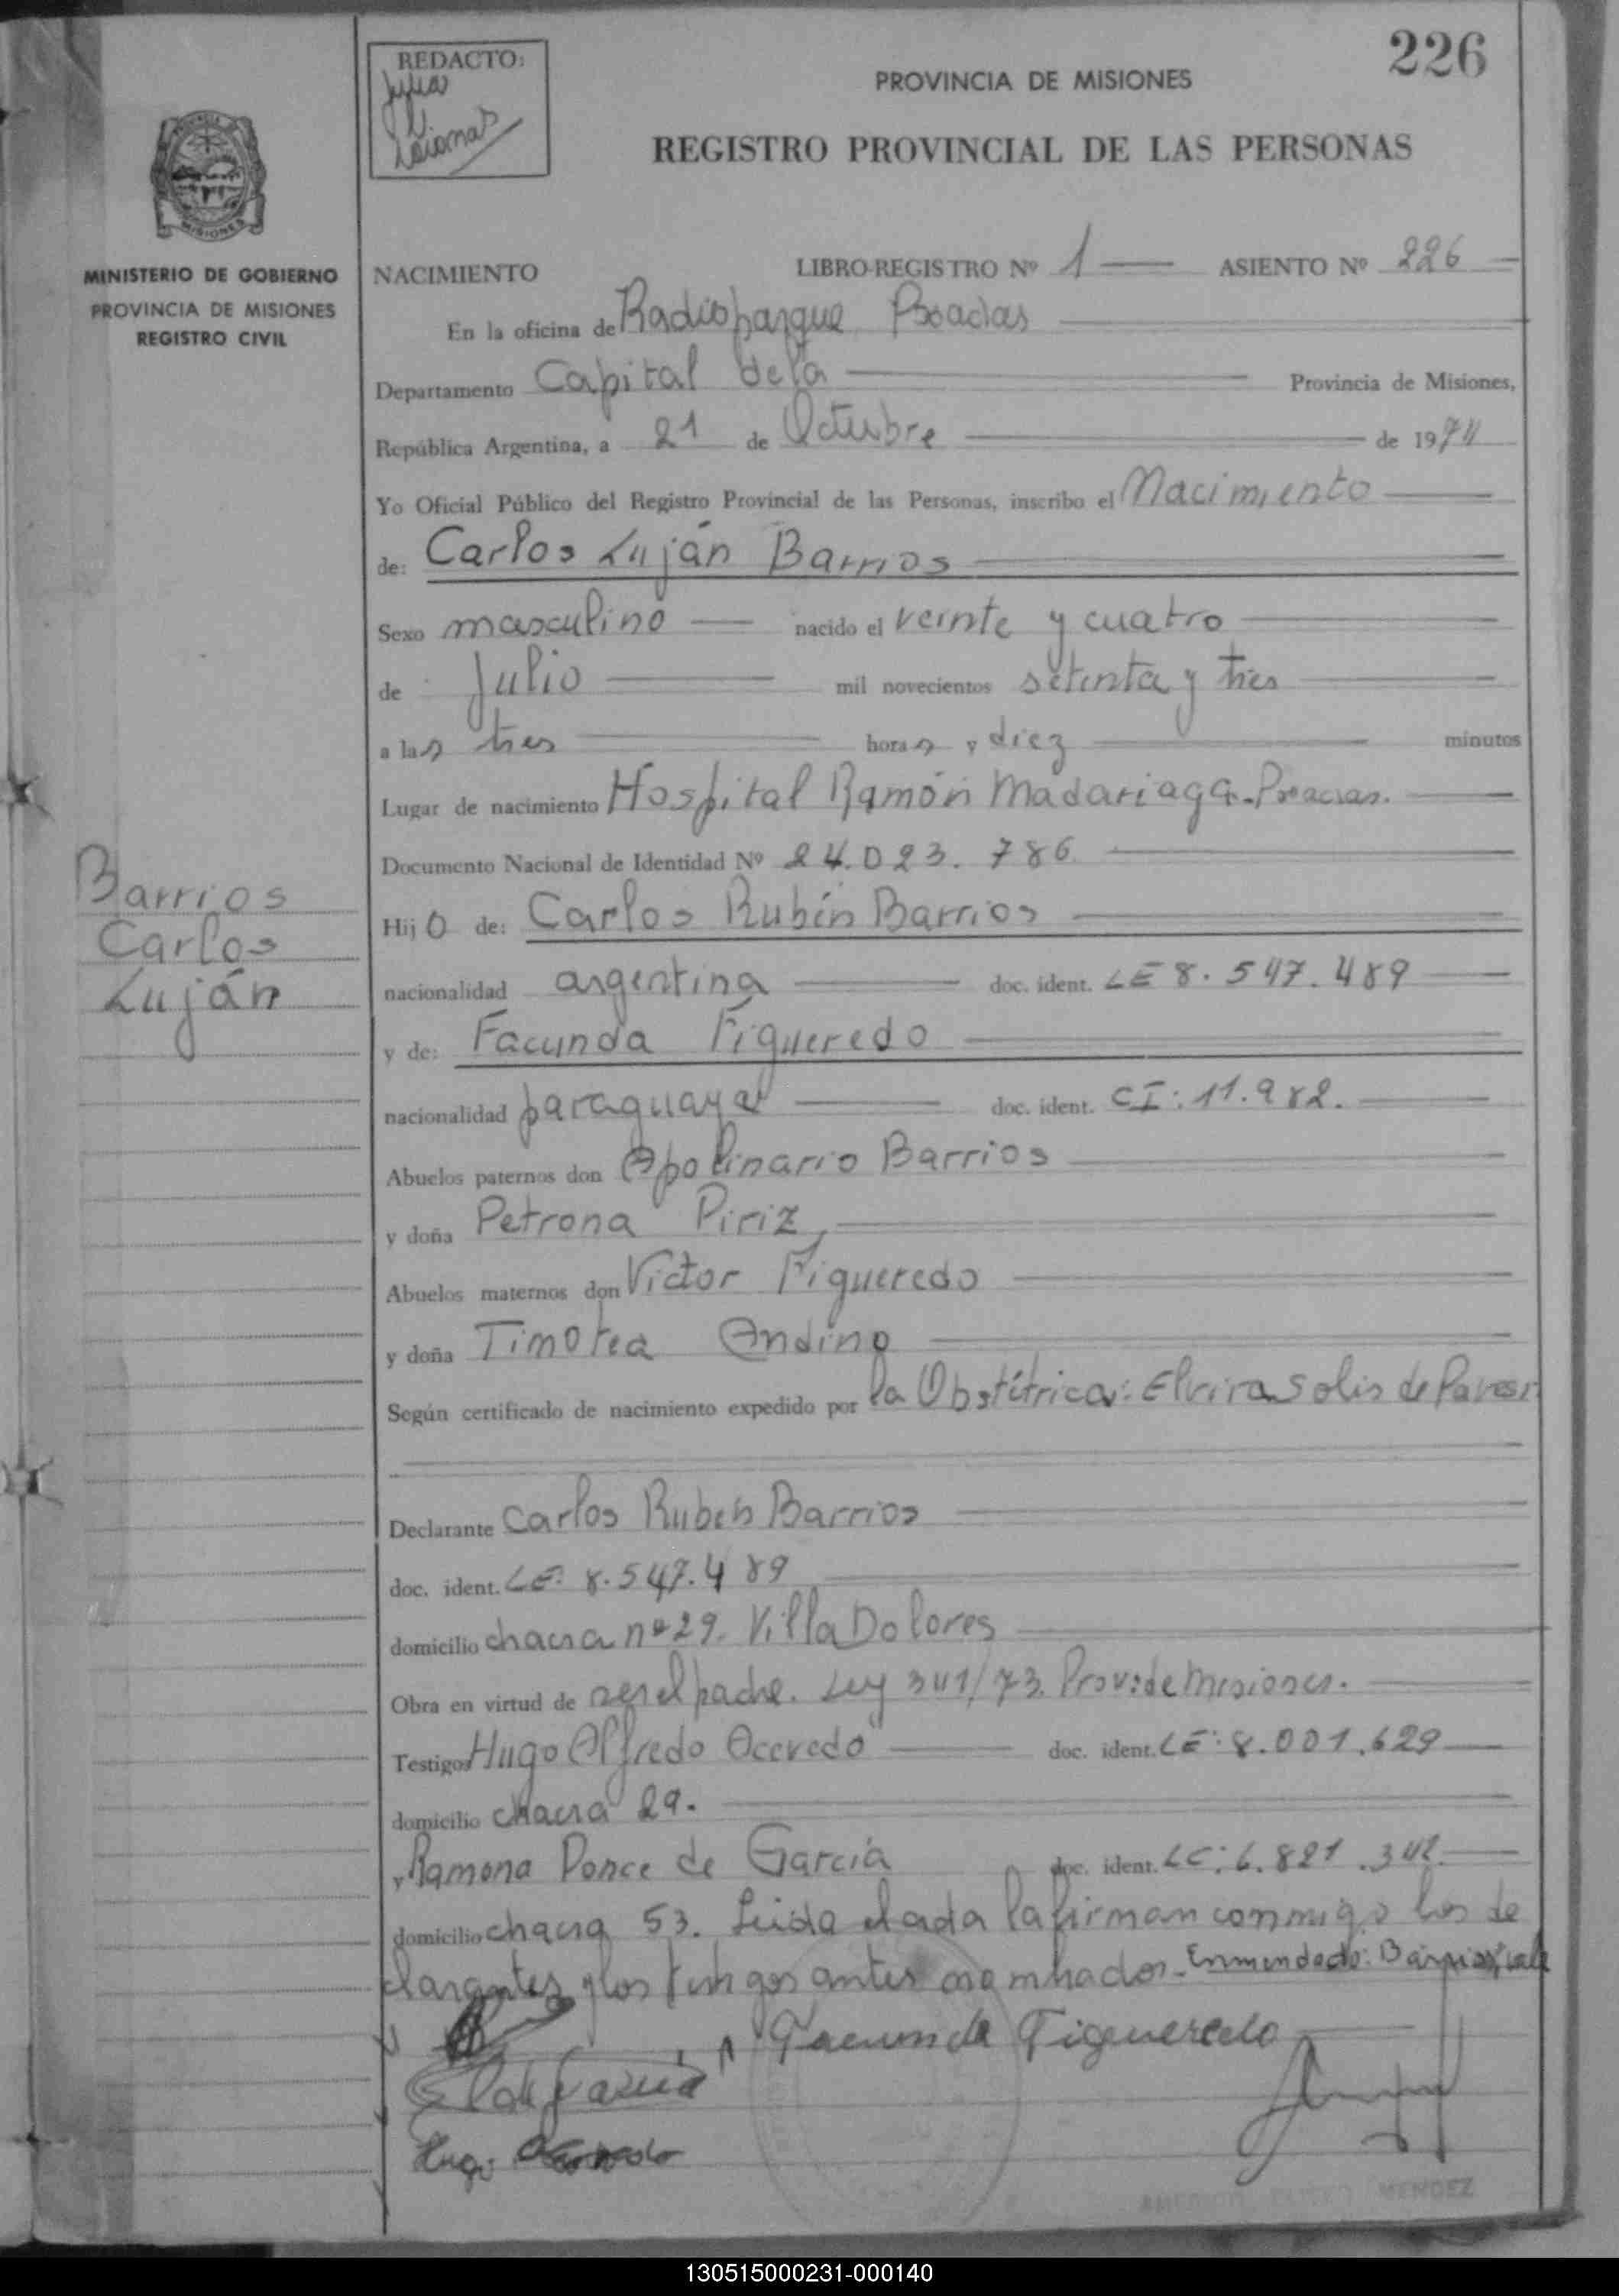 226
REDACTO:
PROVINCIA DE MISIONES
REGISTRO PROVINCIAL DE LAS PERSONAS
MISIONES
MINISTERIO DE GOBIERNO
PROVINCIA DE MISIONES
REGISTRO CIVIL
NACIMIENTO LIBRO-REGISTRO Nº 1 ASIENTO Nº 226
En la oficina de Radioparque Posadas
Departamento Capital de la Provincia de Misiones,
República Argentina, a 21 de Octubre de 1974
Yo Oficial Público del Registro Provincial de las Personas, inscribo el Nacimiento
de: Carlos Luján Barrios
Sexo masculino nacido el veinte y cuatro
de Julio mil novecientos setenta y tres
a las tres horas y diez minutos
Lugar de nacimiento Hospital Ramón Madariaga - Posadas.
Documento Nacional de Identidad Nº 24.023.786
Barrios
Carlos
Luján
Hijo de: Carlos Rubén Barrios
nacionalidad argentina doc. ident. LE 8.547.489
y de: Facunda Figueredo
nacionalidad paraguaya doc. ident. CI: 11.982.
Abuelos paternos don Apolinario Barrios
y doña Petrona Piriz
Abuelos maternos don Victor Figueredo
y doña Timotea Andino
Según certificado de nacimiento expedido por la Obstétrica: Elvira Solis de Pavesi
Declarante Carlos Ruben Barrios
doc. ident. LE: 8.547.489
domicilio chacra nº 29. Villa Dolores
Obra en virtud de ser el padre. Ley 341/73. Prov: de Misiones.
Testigos Hugo Alfredo Acevedo doc. ident. LE: 8.001.629
domicilio chacra 29.
y Ramona Ponce de García doc. ident. LC: 6.821.342.
domicilio chacra 53. Leida el acta la firman conmigo los de
clarantes y los testigos antes nombrados - Enmendado: Barrios, vale
Facunda Figueredo
Hugo Acevedo
MENDEZ
130515000231-000140